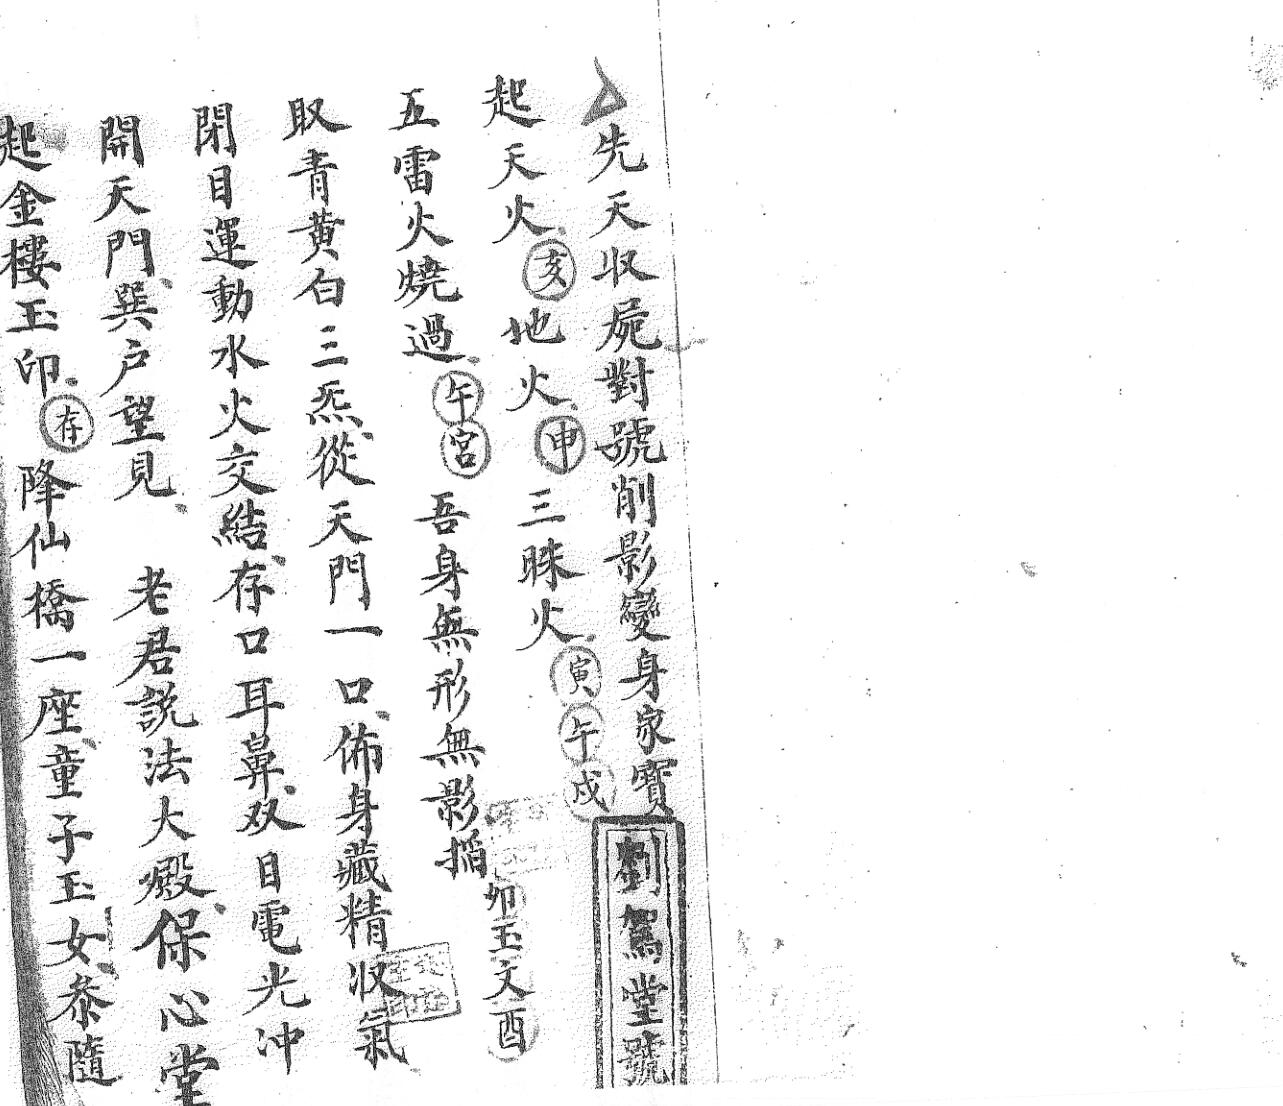 先天収屍對號削影變身家寶
劉駕堂號
起天火亥地火申三昧火寅午戌
五雷火燒過午宮吾身無形無影掐卯玉文酉
取青黃白三炁從天門一口佈身藏精収氣
閉目運動水火交結存口耳鼻双目電光冲
開天門巽户望見老君説法大殿保心堂
起金樓玉印存降仙橋一座童子玉女叅隨